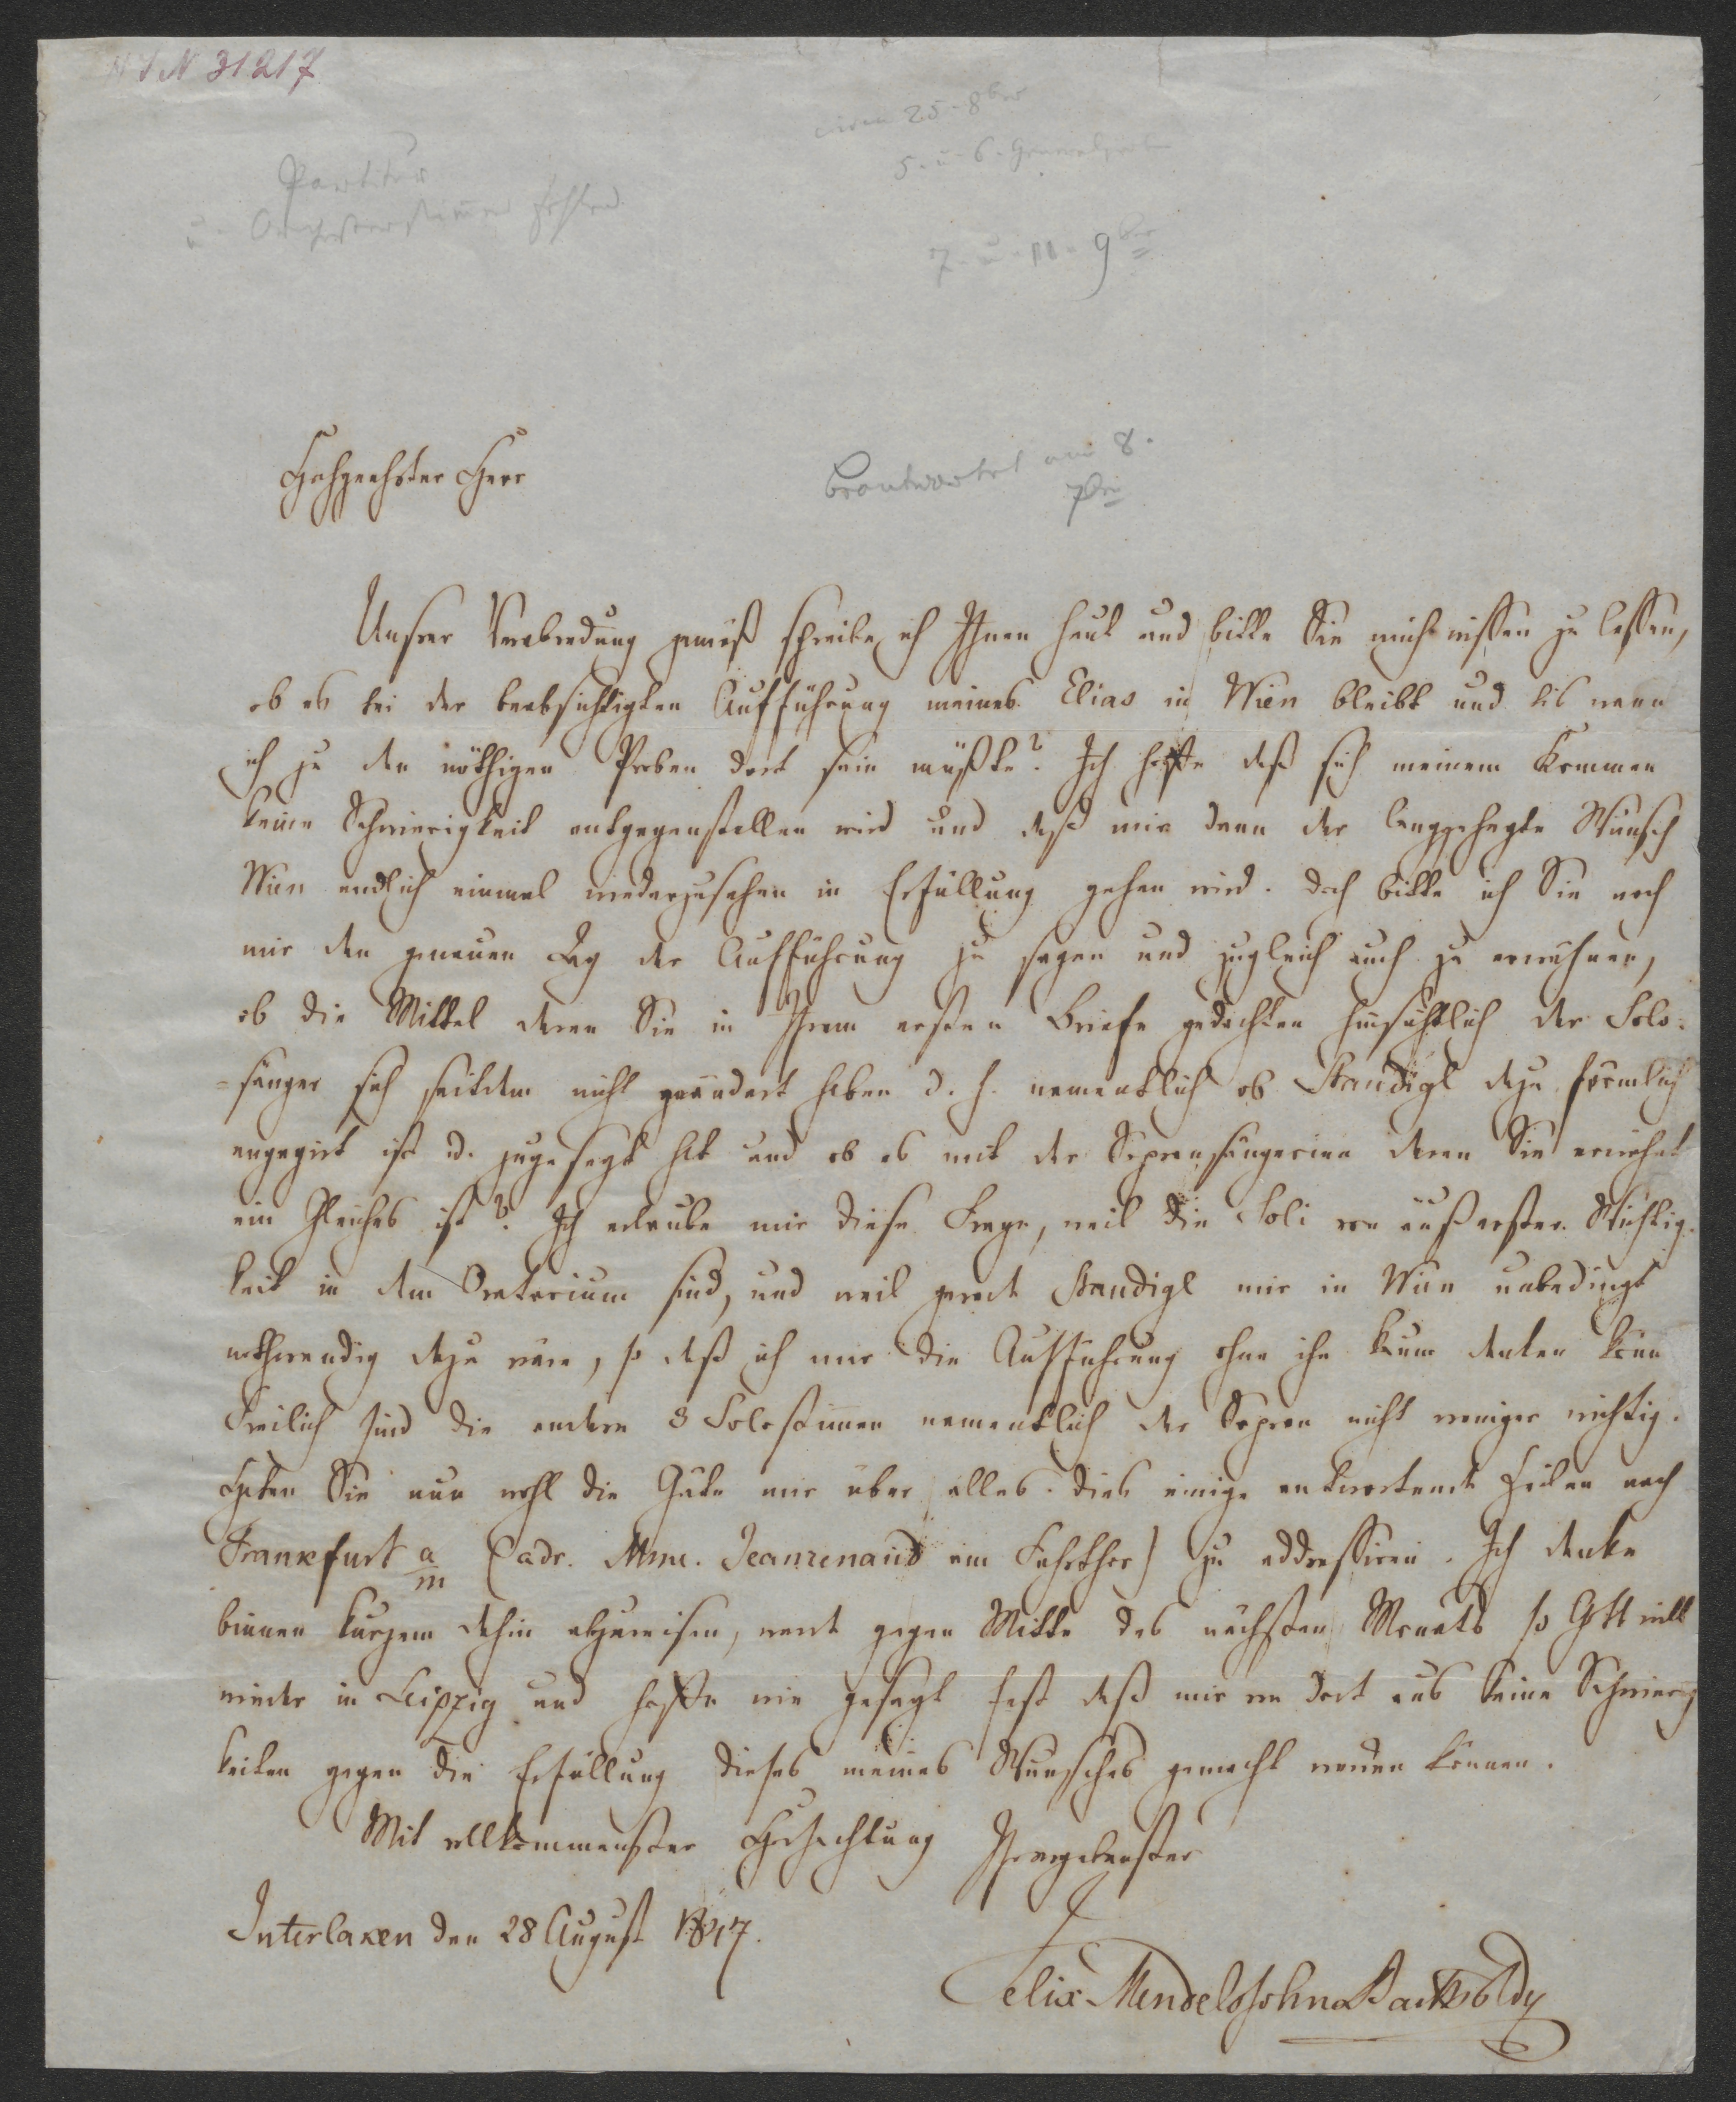 N 31217
circa 25. 8ber
5. u. 6. Generalprobe
Partitur
u. Orchesterstimmen fehlen
7. u. 9ber
Hochgeehrter Herr
beantwortet am 8.
7br
Unsrer Verabredung gemäß schreibe ich Ihnen heut und bitte Sie mich wissen zu lassen,
ob es bei der beabsichtigten Aufführung meines Elias in Wien bleibt und bis wann
ich zu den nöthigen Proben dort sein müßte? Ich hoffe daß sich meinem Kommen
keine Schwierigkeit entgegenstellen wird und daß mir dann der langgehegte Wunsch
Wien endlich einmal wiederzusehen in Erfüllung gehen wird. Doch bitte ich Sie noch
mir den genauen Tag der Aufführung zu sagen und zugleich auch zu erwähnen,
ob die Mittel deren Sie in Ihrem ersten Briefe gedachten hinsichtlich der Solo-
-sänger sich seitdem nicht geändert haben d. h. namentlich ob Staudigl dazu förmlich
engagirt ist u. zugesagt hat und ob es mit der Sopransängerinn deren Sie erwähnt
ein Gleiches ist? Ich erlaube mir diese Frage, weil die Soli von äußerster Wichtig-
keit in dem Oratorium sind, und weil gerade Staudigl mir in Wien unbedingt
nothwendig dazu wäre, so daß ich mir die Aufführung ohne ihn kaum denken kann
Freilich sind die andern 3 Solostimmen namentlich der Sopran nicht weniger wichtig.
Haben Sie nun wohl die Güte mir über alles dies einige antwortende Zeilen nach
Frankfurt a/m (adr. Mme. Jeanrenaud am Fahrthor) zu addressiren. Ich denke
binnen kurzem dahin abzureisen, werde gegen Mitte des nächsten Monats so Gott will
wieder in Leipzig und hoffe wie gesagt fest daß mir von dort aus keine Schwierig
keiten gegen die Erfüllung dieses meines Wunsches gemacht werden können.
Mit vollkommenster Hochachtung Ihr ergebenster
Interlaken den 28 August 1847.
Felix Mendelssohn Bartholdy